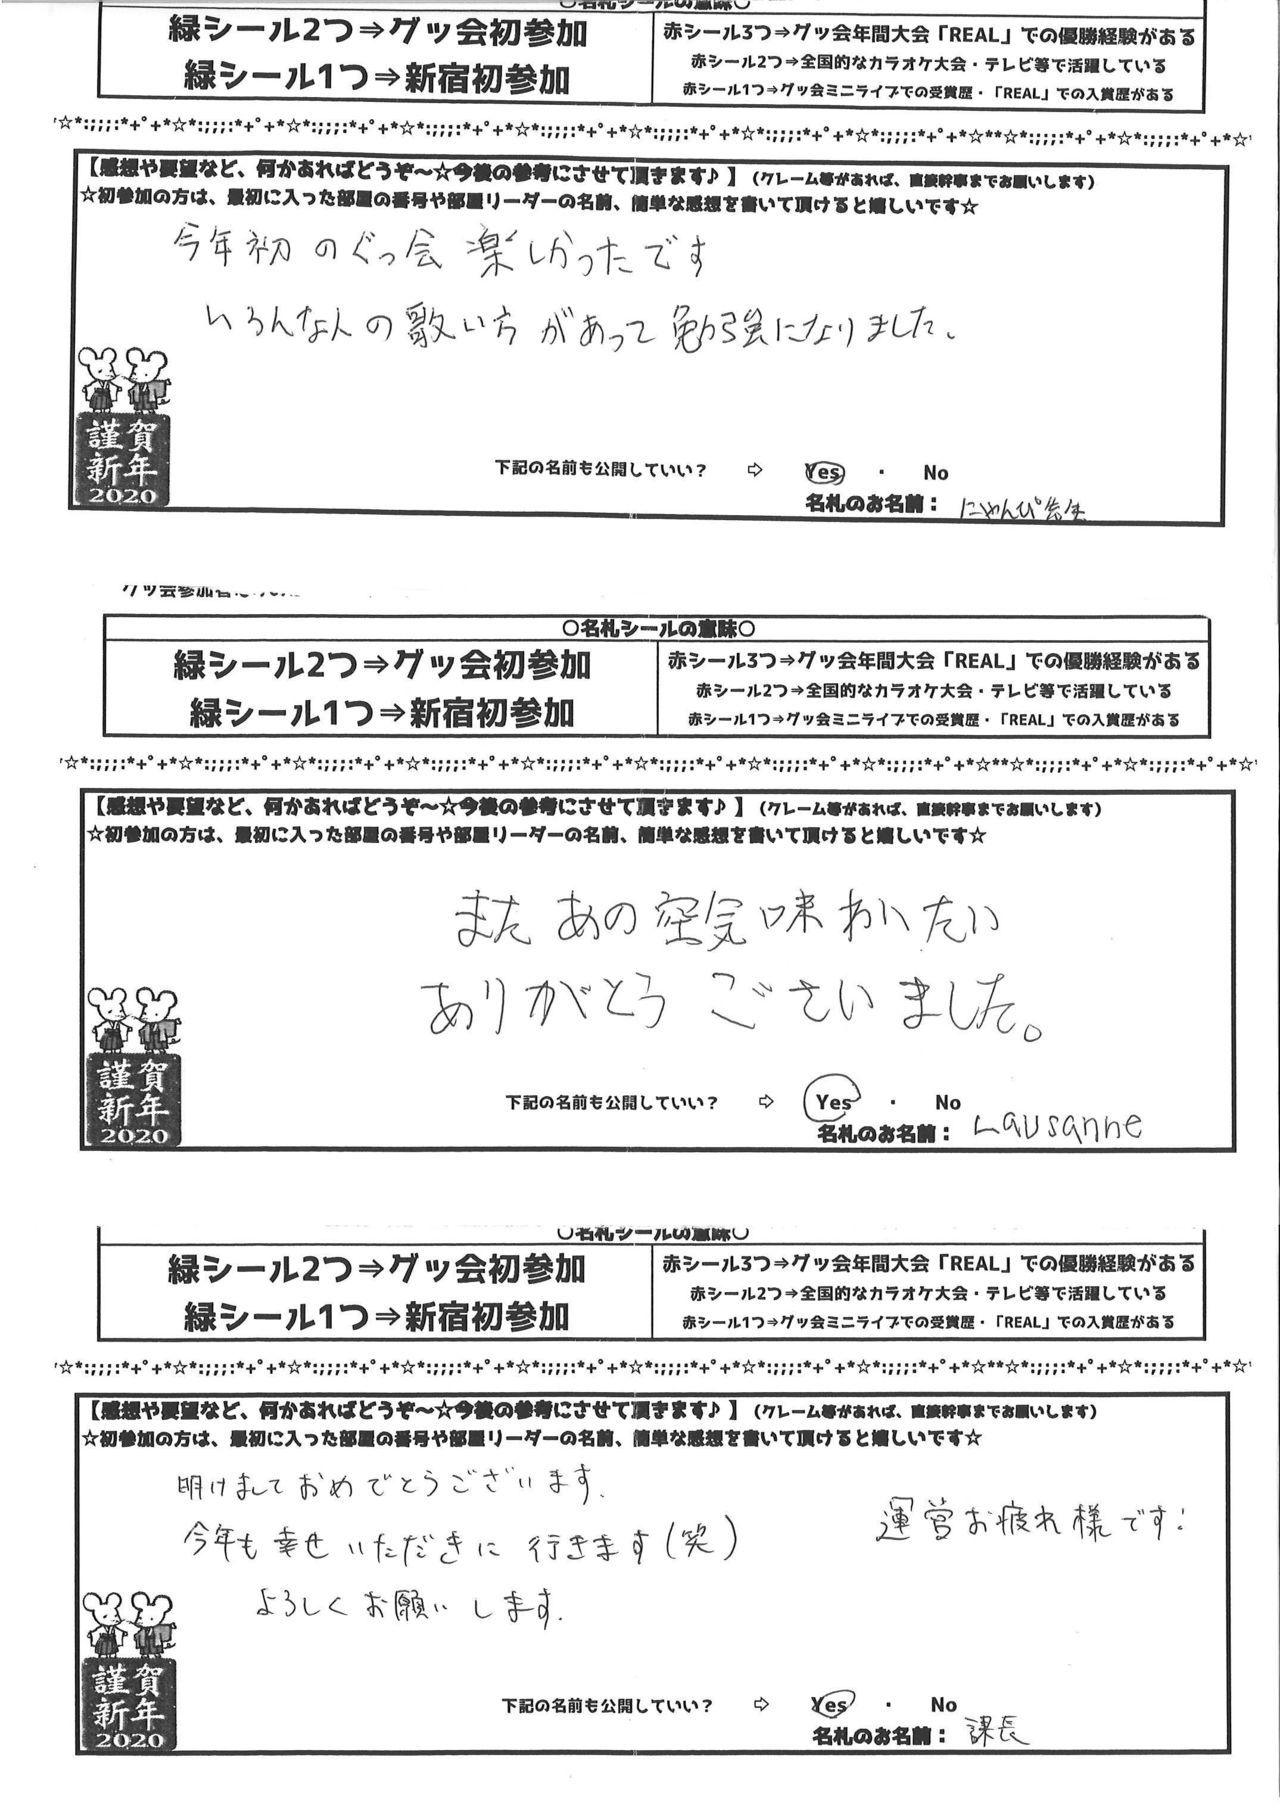 ○名札シールの意味○
緑シール2つ⇒グッ会初参加
緑シール1つ⇒新宿初参加
赤シール3つ⇒グッ会年間大会「REAL」での優勝経験がある
赤シール2つ⇒全国的なカラオケ大会・テレビ等で活躍している
赤シール1つ⇒グッ会ミニライブでの受賞歴・「REAL」での入賞歴がある
'☆*:;;;:*+°+*☆*:;;;:*+°+*☆*:;;;:*+°+*☆*:;;;:*+°+*☆*:;;;:*+°+*☆*:;;;:*+°+*☆*:;;;:*+°+*☆*:;;;:*+°+*☆**☆*:;;;:*+°+*☆*:;;;:*+°+*☆'
【感想や要望など、何かあればどうぞ～☆今後の参考にさせて頂きます♪】(クレーム等があれば、直接幹事までお願いします)
☆初参加の方は、最初に入った部屋の番号や部屋リーダーの名前、簡単な感想を書いて頂けると嬉しいです☆
今年初のぐっ会 楽しかったです
いろんな人の歌い方があって勉強になりました。
謹賀
新年
2020
下記の名前も公開していい？ ⇨ Yes ・ No
名札のお名前： にゃんぴ先生
グッ会参加者は
○名札シールの意味○
緑シール2つ⇒グッ会初参加
緑シール1つ⇒新宿初参加
赤シール3つ⇒グッ会年間大会「REAL」での優勝経験がある
赤シール2つ⇒全国的なカラオケ大会・テレビ等で活躍している
赤シール1つ⇒グッ会ミニライブでの受賞歴・「REAL」での入賞歴がある
'☆*:;;;:*+°+*☆*:;;;:*+°+*☆*:;;;:*+°+*☆*:;;;:*+°+*☆*:;;;:*+°+*☆*:;;;:*+°+*☆*:;;;:*+°+*☆*:;;;:*+°+*☆**☆*:;;;:*+°+*☆*:;;;:*+°+*☆'
【感想や要望など、何かあればどうぞ～☆今後の参考にさせて頂きます♪】(クレーム等があれば、直接幹事までお願いします)
☆初参加の方は、最初に入った部屋の番号や部屋リーダーの名前、簡単な感想を書いて頂けると嬉しいです☆
またあの空気味わいたい
ありがとうございました。
謹賀
新年
2020
下記の名前も公開していい？ ⇨ Yes ・ No
名札のお名前： Lausanne
○名札シールの意味○
緑シール2つ⇒グッ会初参加
緑シール1つ⇒新宿初参加
赤シール3つ⇒グッ会年間大会「REAL」での優勝経験がある
赤シール2つ⇒全国的なカラオケ大会・テレビ等で活躍している
赤シール1つ⇒グッ会ミニライブでの受賞歴・「REAL」での入賞歴がある
'☆*:;;;:*+°+*☆*:;;;:*+°+*☆*:;;;:*+°+*☆*:;;;:*+°+*☆*:;;;:*+°+*☆*:;;;:*+°+*☆*:;;;:*+°+*☆*:;;;:*+°+*☆**☆*:;;;:*+°+*☆*:;;;:*+°+*☆'
【感想や要望など、何かあればどうぞ～☆今後の参考にさせて頂きます♪】(クレーム等があれば、直接幹事までお願いします)
☆初参加の方は、最初に入った部屋の番号や部屋リーダーの名前、簡単な感想を書いて頂けると嬉しいです☆
明けましておめでとうございます.
今年も幸せいただきに行きます(笑)
よろしくお願いします.
運営お疲れ様です!
謹賀
新年
2020
下記の名前も公開していい？ ⇨ Yes ・ No
名札のお名前： 課長